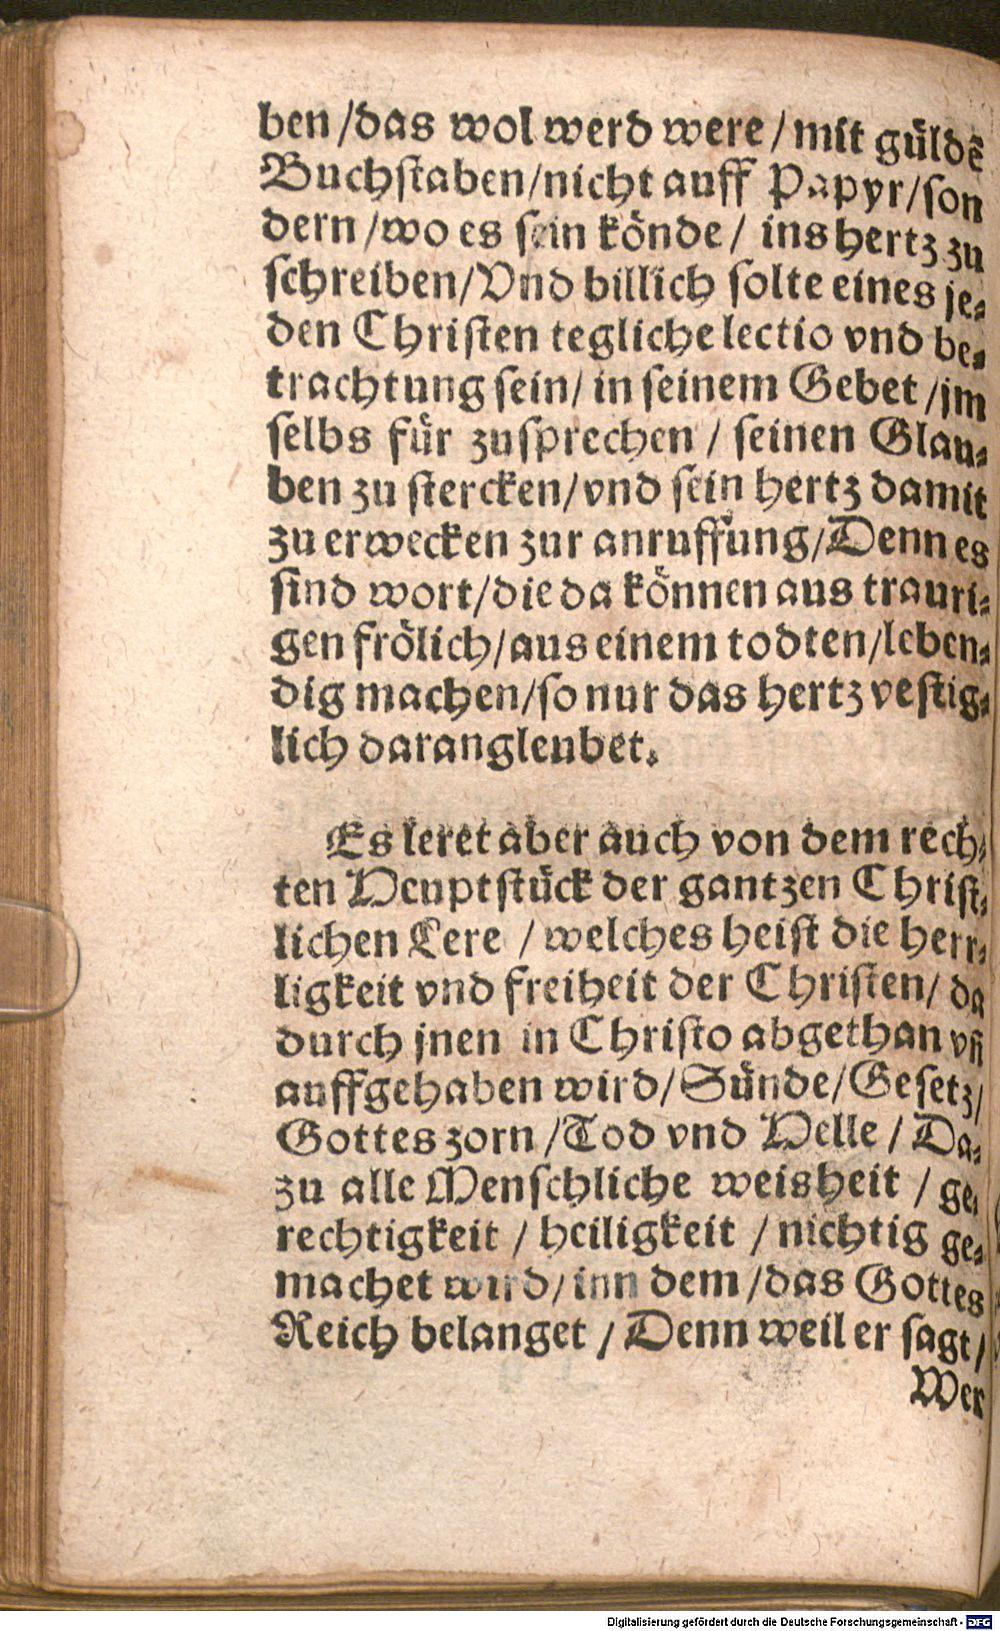 ben /das wol werd were / mit güldē
Buchstaben/nicht auff Papyr/son
dern /wo es sein könde / ins hertz zu
schreiben/Vnd billich solte eines je-
den Christen tegliche lectio vnd be-
trachtung sein/ in seinem Gebet /jm
selbs für zusprechen / seinen Glau-
ben zu stercken/vnd sein hertz damit
zu erwecken zur anruffung/Denn es
sind wort/die da können aus trauri-
gen frölich/aus einem todten/leben-
dig machen/so nur das hertz vestig-
lich daran gleubet.
Es leret aber auch von dem rech-
ten Heuptstück der gantzen Christ-
lichen Lere / welches heist die herr-
ligkeit vnd freiheit der Christen/ da
durch jnen in Christo abgethan vñ
auffgehaben wird/Sünde/Gesetz/
Gottes zorn /Tod vnd Helle / Da-
zu alle Menschliche weisheit / ge-
rechtigkeit / heiligkeit / nichtig ge-
machet wird/ inn dem /das Gottes
Reich belanget / Denn weil er sagt/
Wer
Digitalisierung gefördert durch die Deutsche Forschungsgemeinschaft - DFG